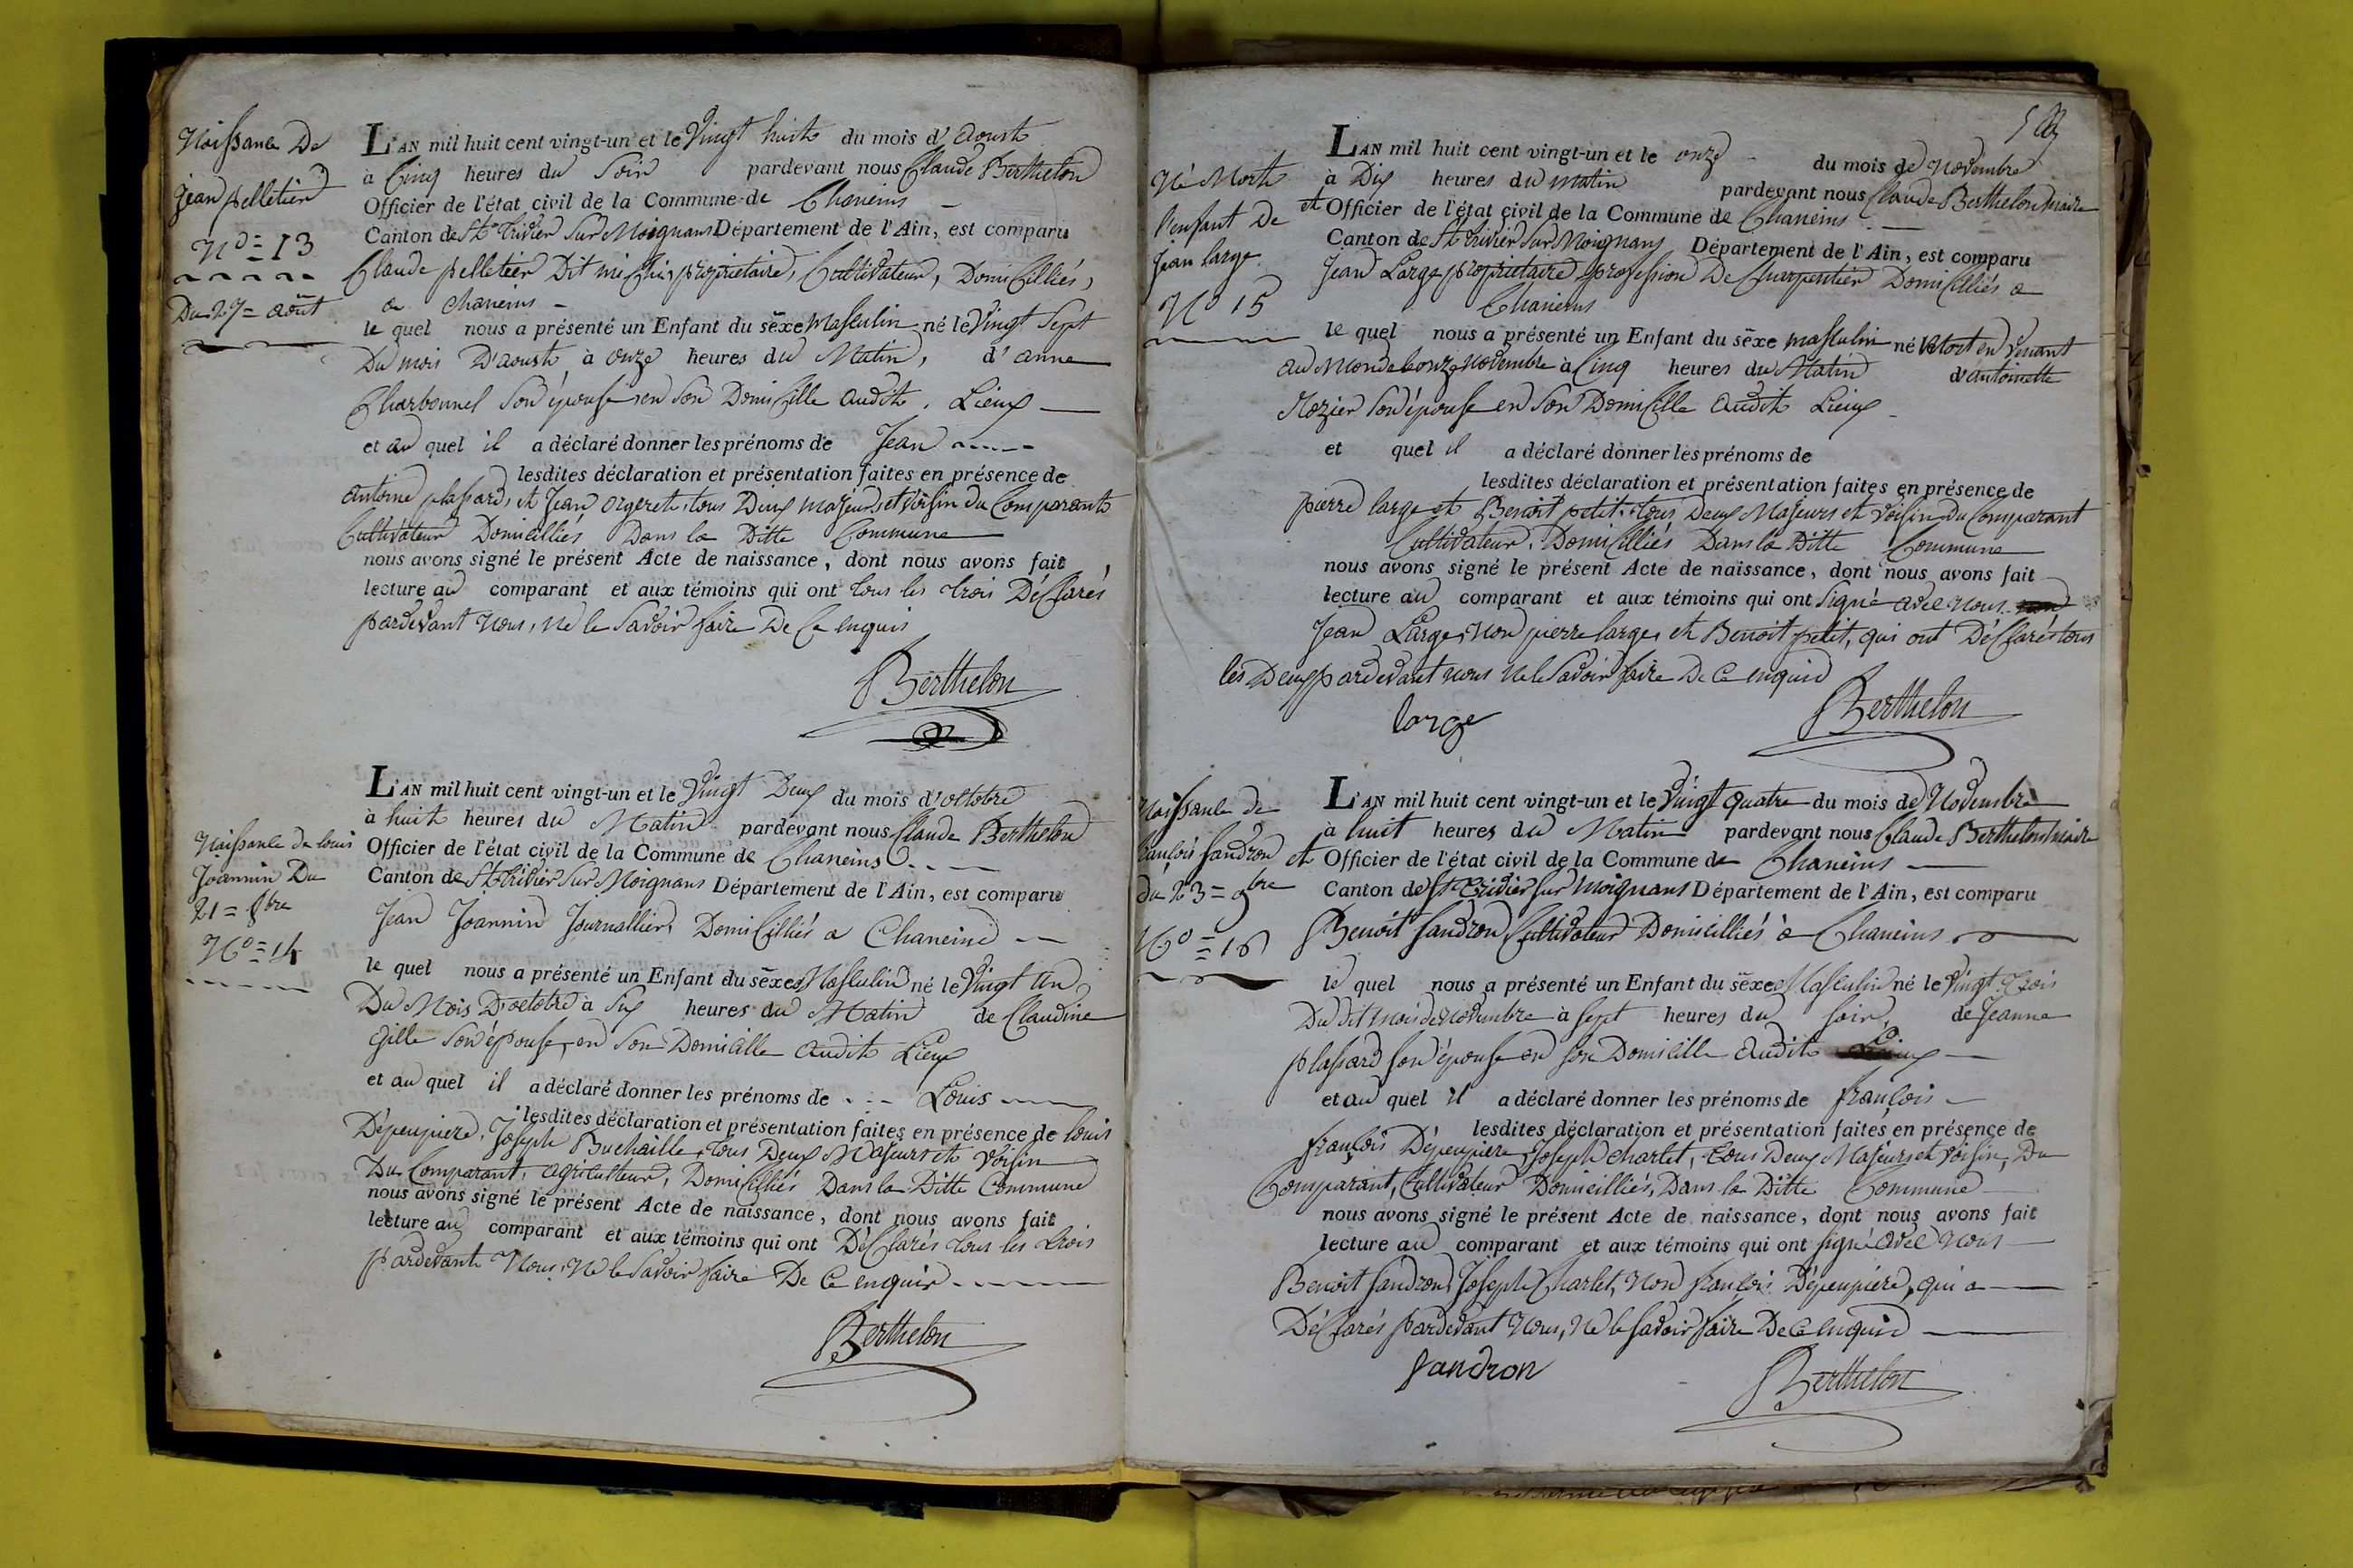 Naissance De
jean pelletier
N° = 13
Du 27 = août
L'AN mil huit cent vingt-un et le Vingt huit du mois d'Aoust
à Cinq heures du Soir pardevant nous Claude Berthelon
Officier de l'état civil de la Commune de Chaneins
Canton de St Trivier Sur Moignans Département de l'Ain, est comparu
Claude pelletier Dit propriétaire, Cultivateur, Domicilliés,
a chaneins
le quel nous a présenté un Enfant du sexe Masculin né le Vingt Sept
Du mois D'aoust à onze heures du Matin, d'anne
Charbonnel Son épouse, en Son Domicille audit Lieux
et au quel il a déclaré donner les prénoms de Jean
lesdites déclaration et présentation faites en présence de
antoine plassard, et Jean orgeret, tous Deux majeurs et Voisin du Comparant
Cultivateur Domicilliés Dans la Ditte Commune
nous avons signé le présent Acte de naissance, dont nous avons fait
lecture au comparant et aux témoins qui ont tous les trois Déclarés
pardevant Nous, Ne le Savoir faire De Ce enquis
Berthelon
Naissance de louis
Joannin Du
21 = 8bre
N° = 14
L'AN mil huit cent vingt-un et le Vingt Deux du mois d'octobre
à huit heures du Matin pardevant nous Claude Berthelon
Officier de l'état civil de la Commune de Chaneins
Canton de St Trivier Sur Moignans Département de l'Ain, est comparu
Jean Joannin Journallier, Domicilliés a Chaneins
le quel nous a présenté un Enfant du sexe Masculin né le Vingt Un
Du Mois D'octobre à Six heures du Matin de Claudine
Gille Son épouse, en Son Domicille audit Lieux
et au quel il a déclaré donner les prénoms de Louis
lesdites déclaration et présentation faites en présence de louis
Dépeupiere, Joseph Buchaille, tous Deux Majeurs et Voisin
Du Comparant, agriculteur, Domicilliés Dans la Ditte Commune
nous avons signé le présent Acte de naissance, dont nous avons fait
lecture au comparant et aux témoins qui ont Déclarés tous les trois
pardevant Nous, Ne le Savoir faire De Ce enquis
Berthelon
Né Mort
l'enfant De
jean large
N° 15
L'AN mil huit cent vingt-un et le onze du mois de Novembre
à Dix heures du matin pardevant nous Claude Berthelon Maire
et Officier de l'état civil de la Commune de Chaneins
Canton de St Trivier Sur Moignans Département de l'Ain, est comparu
Jean Large propriétaire profession De Charpentier Domicilliés a
Chaneins
le quel nous a présenté un Enfant du sexe masculin né Mort en Venant
au Monde le onze Novembre à Cinq heures du Matin d'antoinette
Rozier Son épouse en Son Domicille audit Lieux
et quel il a déclaré donner les prénoms de
lesdites déclaration et présentation faites en présence de
pierre large et Benoit petit, tous Deux Majeurs et Voisin du Comparant
Cultivateur, Domicilliés Dans la Ditte Commune
nous avons signé le présent Acte de naissance, dont nous avons fait
lecture au comparant et aux témoins qui ont Signé avec Nous
Jean Large, Non pierre large, et Benoit petit, qui ont Déclarés tous
les Deux pardevant nous Ne le Savoir faire De Ce enquis
large
Berthelon
Naissance de
françois sandron
du 23 = 9bre
N° = 16
L'AN mil huit cent vingt-un et le Vingt quatre du mois de Novembre
à huit heures du Matin pardevant nous Claude Berthelon Maire
et Officier de l'état civil de la Commune de Chaneins
Canton de St Trivier sur Moignans Département de l'Ain, est comparu
Benoit sandron Cultivateur Domicilliés à Chaneins
le quel nous a présenté un Enfant du sexe Masculin né le Vingt Trois
Du dit mois de Novembre à Sept heures du soir, de Jeanne
plassard son épouse en son Domicille audit
et au quel il a déclaré donner les prénoms de françois
lesdites déclaration et présentation faites en présence de
françois Dépeupiere, Joseph Charlet, tous Deux Majeurs et Voisin, Du
Comparant, Cultivateur Domicilliés, Dans la Ditte Commune
nous avons signé le présent Acte de naissance, dont nous avons fait
lecture au comparant et aux témoins qui ont signé avec Nous
Benoit sandron, Joseph Charlet, Non françois Dépeupiere, qui a
Déclarés pardevant Nous, Ne le savoir faire De Ce enquis
sandron
Berthelon